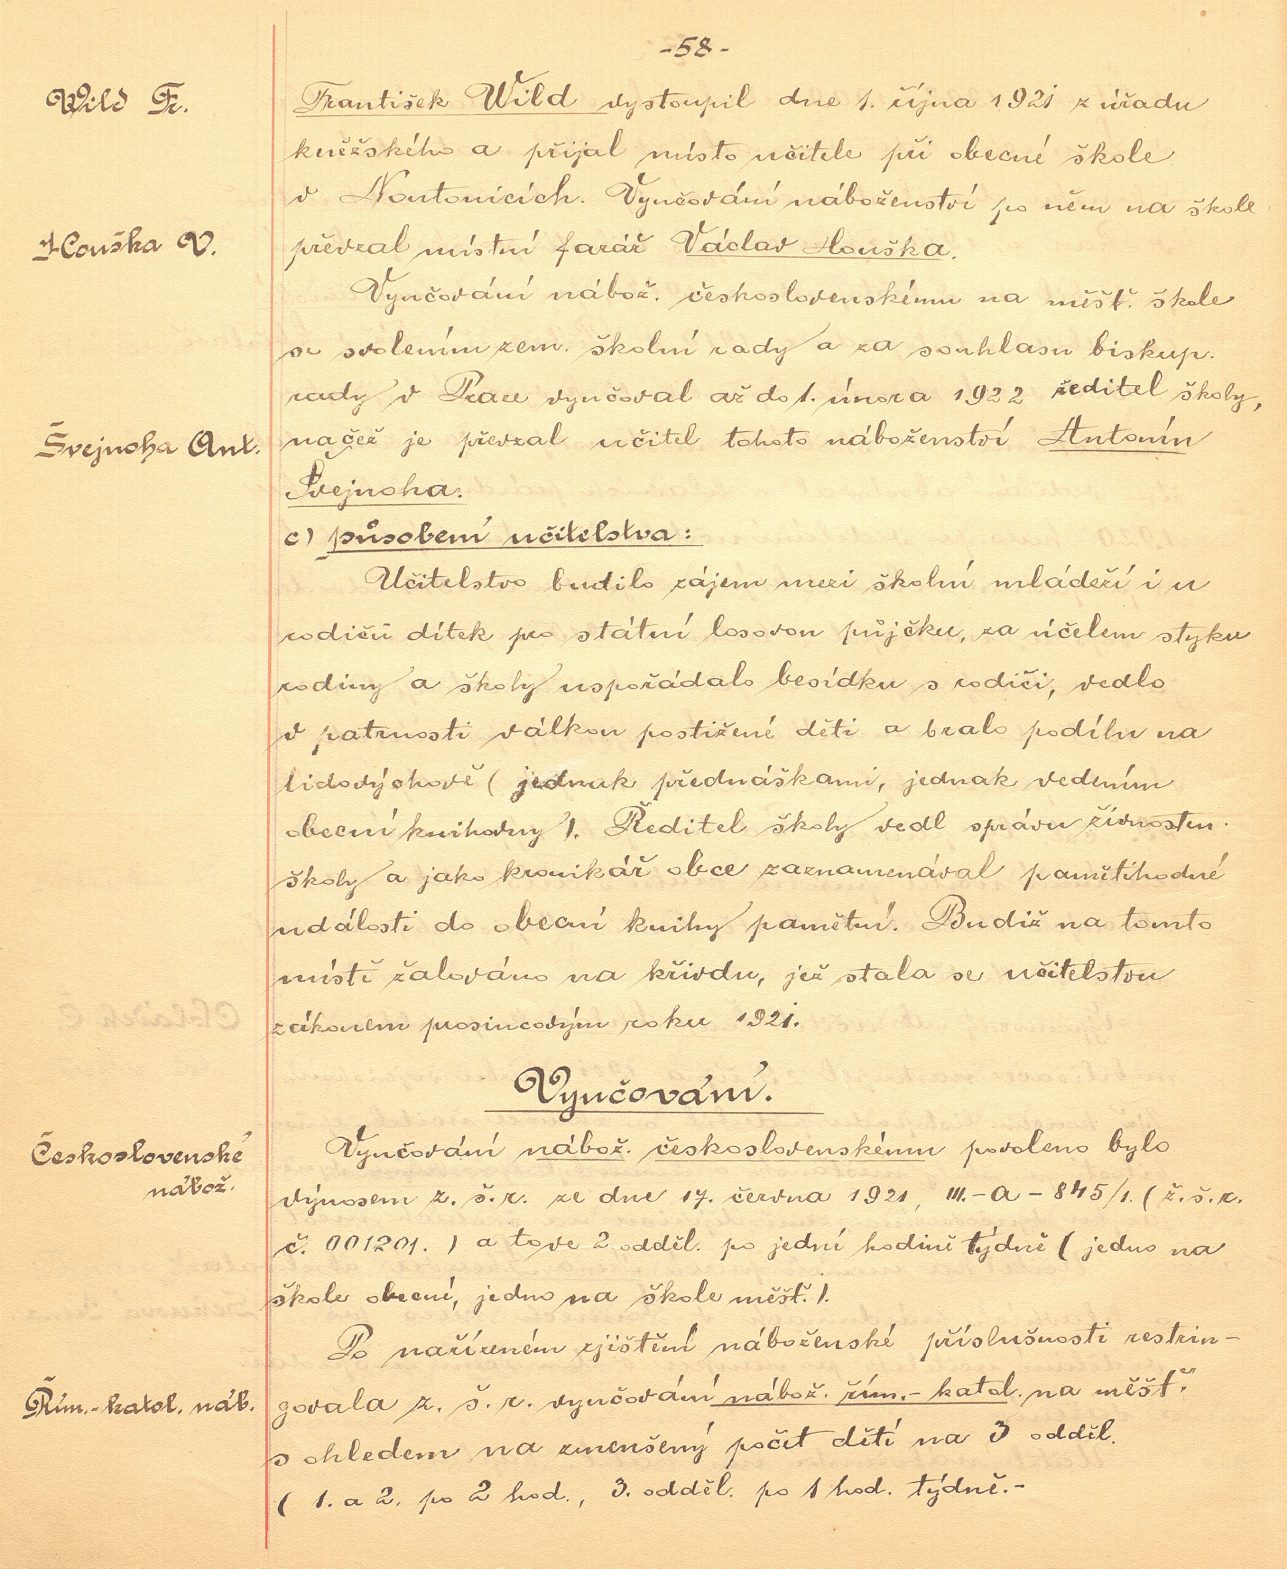 -58-
Wild Fr.
František Wild vystoupil dne 1. října 1921 z úřadu
kněžského a přijal místo učitele při obecné škole
v Noutonicích. Vyučování náboženství po něm na škole
Houška V.
převzal místní farář Václav Houška.
Vyučování nábož. československému na měšť. škole
se svolením zem. školní rady a za souhlasu biskup.
rady v Praze vyučoval až do 1. února 1922 ředitel školy,
Švejnoha Ant.
načež je převzal učitel tohoto náboženství Antonín
Švejnoha.
c) působení učitelstva:
Učitelstvo budilo zájem mezi školní mládeží i u
rodičů dítek pro státní losovou půjčku, za účelem styku
rodiny a školy uspořádalo besídku s rodiči, vedlo
v patrnosti válkou postižené děti a bralo podílu na
lidovýchově (jednak přednáškami, jednak vedením
obecní knihovny). Ředitel školy vedl správu živnosten.
školy a jako kronikář obce zaznamenával pamětihodné
události do obecní knihy pamětní. Budiž na tomto
místě žalováno na křivdu, jež stala se učitelstvu
zákonem prosincovým roku 1921.
Vyučování.
Československé
nábož.
Vyučování nábož. československému povoleno bylo
výnosem z. š. r. ze dne 17. června 1921, III.-A-845/1. (ž. š. r.
č. 001201.) a to ve 2 odděl. po jedné hodině týdně (jedno na
škole obecní, jedno na škole měšť.).
Po nařízeném zjištění náboženské příslušnosti restrin-
Řím.-katol. náb.
govala z. š. r. vyučování nábož. řím.-katol. na měšť.
s ohledem na zmenšený počet dětí na 3 odděl.
(1. a 2. po 2 hod., 3. odděl. po 1 hod. týdně.-